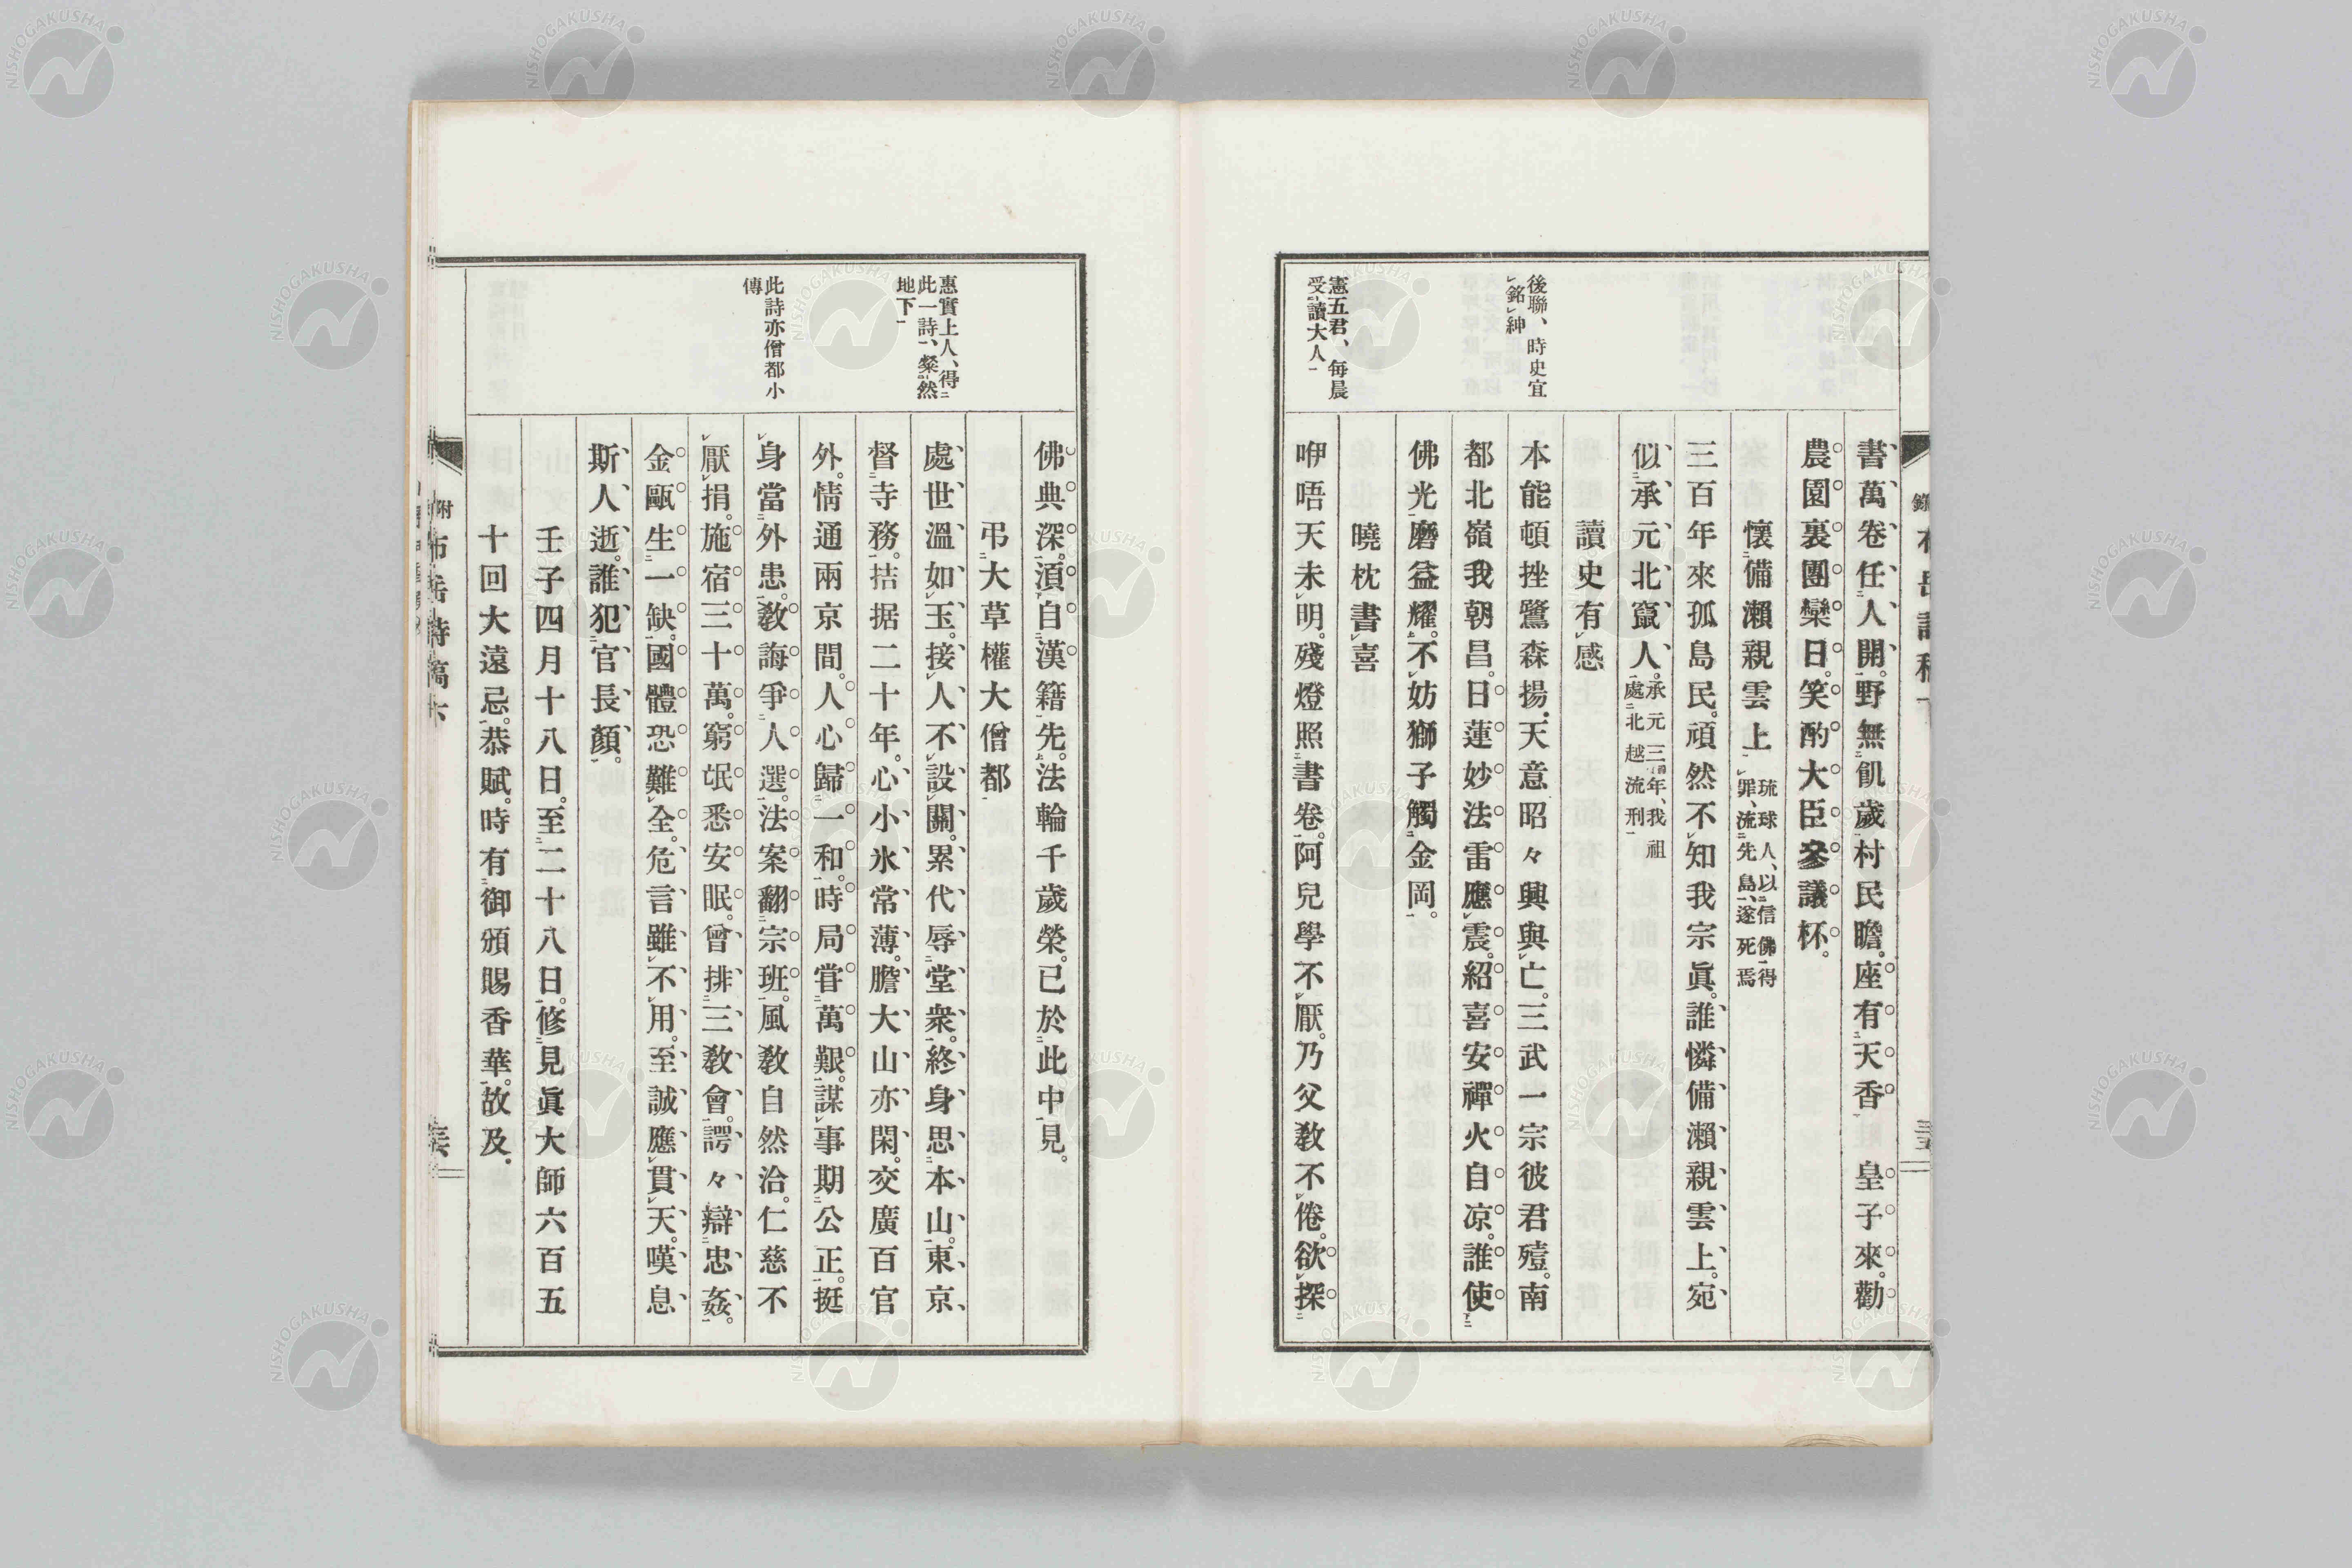 書萬卷任人開。野無飢歲村民瞻。座有天香　皇子來。勸
農園裏團欒日。笑酌大臣參議杯。
懷備瀨親雲上 琉球人、以信佛得罪、流先島、遂死焉
三百年來孤島民。頑然不知我宗眞。誰憐備瀨親雲上。宛
似承元北竄人。承元三年、我祖處北越流刑
讀史有感
本能頓挫鷺森揚。天意昭々興與亡。三武一宗彼君殪。南
都北嶺我朝昌。日蓮妙法雷應震。紹喜安禪火自凉。誰使
佛光磨益耀。不妨獅子觸金岡。
曉枕書喜
咿唔天未明。殘燈照書卷。阿兒學不厭。乃父敎不倦。欲探
後聯、時史宜
銘紳
憲五君、每晨
受讀大人
佛典深。須自漢籍先。法輪千歲榮。已於此中見。
弔大草權大僧都
處世溫如玉。接人不設關。累代辱堂衆。終身思本山。東京
督寺務。拮据二十年。心小氷常薄。膽大山亦閑。交廣百官
外。情通兩京間。人心歸一和。時局甞萬艱。謀事期公正。挺
身當外患。敎誨爭人選。法案翻宗班。風敎自然洽。仁慈不
厭捐。施宿三十萬。窮氓悉安眠。曾排三敎會。諤々辯忠姦。
金甌生一缺。國體恐難全。危言雖不用。至誠應貫天。嘆息
斯人逝。誰犯官長顏。
壬子四月十八日。至二十八日。修見眞大師六百五
十回大遠忌。恭賦。時有御頒賜香華。故及。
惠實上人、得
此一詩、粲然
地下
此詩亦僧都小
傳
附
布岳詩稿六